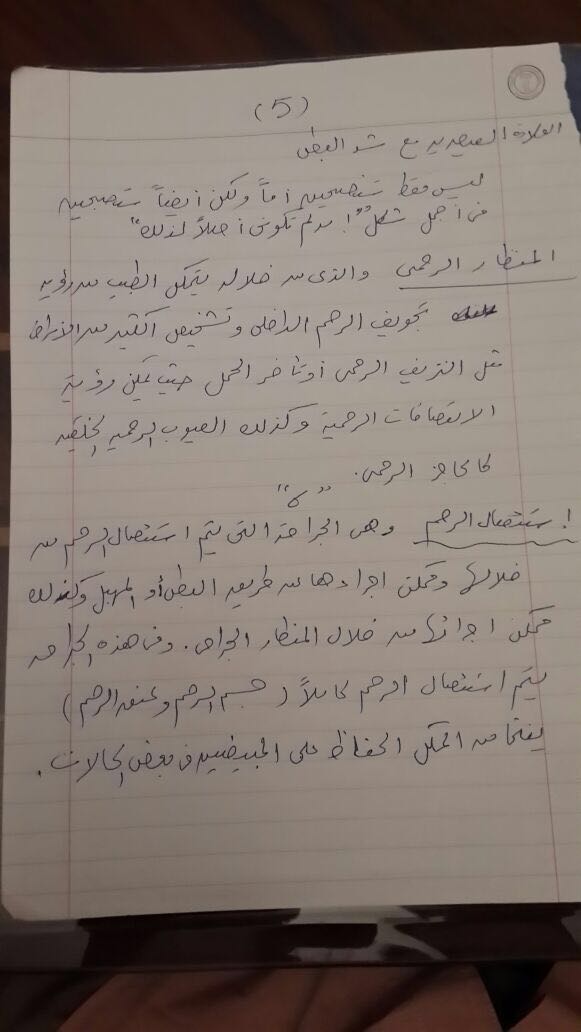 (5)
الولادة القيصرية مع شد البطن
ليس فقط ستصبحين أماً ولكن أيضاً ستصبحين
في أجمل شكل"
المنظار الرحمى والذى من خلاله يتمكن الطبيب من رؤية
تجويف الرحم الداخلى وتشخيص الكثير من الأمراض
مثل النزيف الرحمى أو تأخر الحمل حيث يمكن رؤية
الالتصاقات الرحمية وكذلك العيوب الرحمية الخلقية
كالحاجز الرحمى.
إستئصال الرحم وهى الجراحة التى يتم استئصال الرحم من
خلالها وممكن اجراءها من طريق البطن أو المهبل وكذلك
ممكن اجرائها من خلال المنظار الجراحى. وفى هذه الجراحة
يتم استئصال الرحم كاملاً (جسم الرحم وعنق الرحم)
من الممكن الحفاظ على المبيضين فى بعض الحالات.